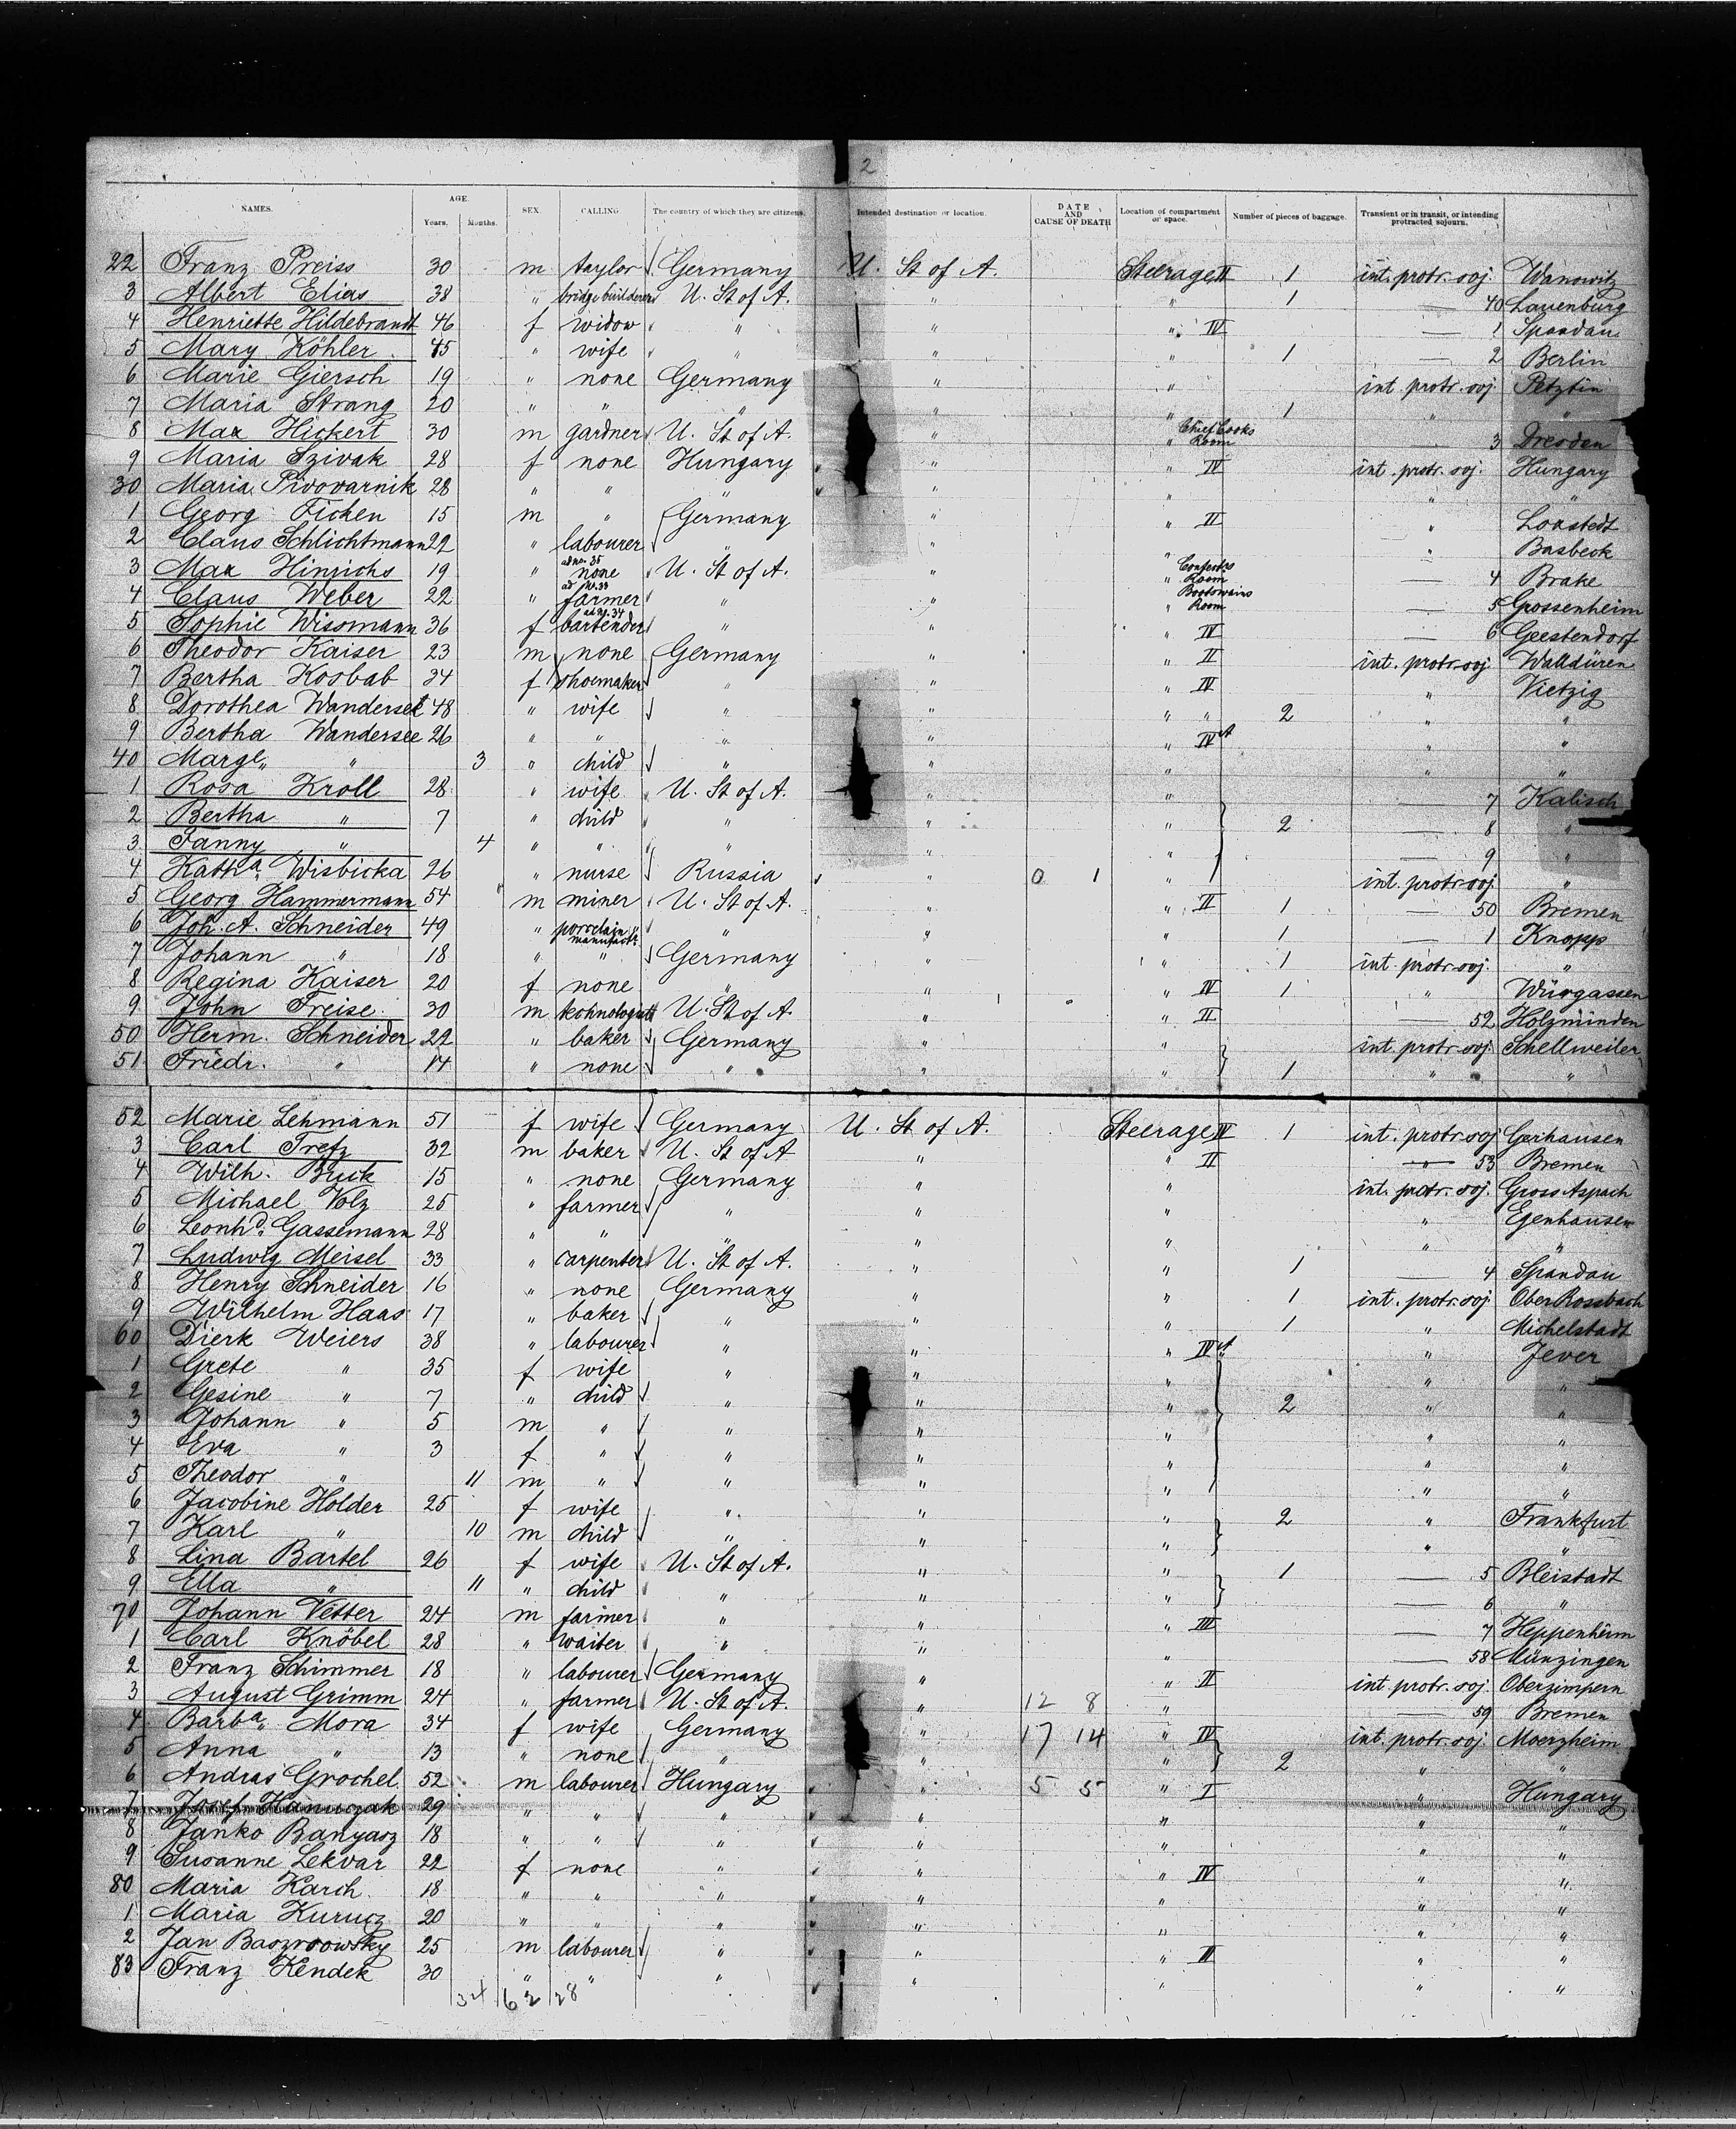 2
NAMES. AGE. Years. Months. SEX. CALLING The country of which they are citizens. Intended destination or location. DATE AND CAUSE OF DEATH Location of compartment or space. Number of pieces of baggage. Transient or in transit, or intending protracted sojourn.
22 Franz Preiss 30 m taylor Germany U. St of A. Steerage II 1 int. protr. soj. Wanowitz
3 Albert Elias 38 " bridgebuilderer U. St of A. " " 1 — 40 Lauenburg
4 Henriette Hildebrandt 46 f widow " " " IV — 1 Spandau
5 Mary Köhler 45 " wife " " " 1 — 2 Berlin
6 Marie Giersch 19 " none Germany " " int. protr. soj. Petztin
7 Maria Strang 20 " " " " " 1 " "
8 Max Hickert 30 m gardner U. St of A. " " Chief Cooks Room — 3 Dresden
9 Maria Szivak 28 f none Hungary " " IV int. protr. soj. Hungary
30 Maria Pivovarnik 28 " " " " " " "
1 Georg Ficken 15 m " Germany " " II " Loxstedt
2 Claus Schlichtmann 22 " labourer " " " " Basbeck
3 Max Hinrichs 19 " ad no. 35 none U. St of A. " " Room — 4 Brake
4 Claus Weber 22 " ad no. 33 farmer " " " Bootswains Room — 5 Grossenheim
5 Sophie Wissmann 36 f ad no. 34 bartender " " " IV — 6 Geestendorf
6 Theodor Kaiser 23 m none Germany " " II int. protr. soj. Walldüren
7 Bertha Kosbab 34 f shoemaker " " " IV " Vietzig
8 Dorothea Wandersee 48 " wife " " " " 2 " "
9 Bertha Wandersee 26 " " " " " IV A " "
40 Marg. " 3 " child " " " " "
1 Rosa Kroll 28 " wife U. St of A. " " — 7 Kalisch
2 Bertha " 7 " child " " " 2 — 8 "
3 Fanny " 4 " " " " " — 9 "
4 Katha. Wisbicka 26 " nurse Russia " 0 1 " int. protr. soj. "
5 Georg Hammermann 54 m miner U. St of A. " " II 1 — 50 Bremen
6 Joh. A. Schneider 49 " porcelain manufactr. " " " 1 — 1 Knopp
7 Johann " 18 " " Germany " " 1 int. protr. soj. "
8 Regina Kaiser 20 f none " " " IV 1 " Würgassen
9 John Freise 30 m technologist U. St of A. " " II — 52 Holzminden
50 Herm. Schneider 22 " baker Germany " " int. protr. soj. Schellweiler
51 Friedr. " 14 " none " " " 1 " "
52 Marie Lehmann 51 f wife Germany U. St of A. Steerage IV 1 int. protr. soj. Gerhausen
3 Carl Trefz 32 m baker U. St of A " " II — 53 Bremen
4 Wilh. Buck 15 " none Germany " " int. protr. soj. Gross Aspach
5 Michael Volz 25 " farmer " " " " Egenhausen
6 Leonhd. Gassemann 28 " " " " " " "
7 Ludwig Meisel 33 " carpenter U. St of A. " " 1 — 4 Spandau
8 Henry Schneider 16 " none Germany " " 1 int. protr. soj. Ober Rossbach
9 Wilhelm Haas 17 " baker " " " 1 " Michelstadt
60 Dierk Weiers 38 " labourer " " " IV A " Jever
1 Grete " 35 f wife " " " " "
2 Gesine " 7 " child " " " 2 " "
3 Johann " 5 m " " " " " "
4 Eva " 3 f " " " " " "
5 Theodor " 11 m " " " " " "
6 Jacobine Holder 25 f wife " " " 2 " Frankfurt
7 Karl " 10 m child " " " " "
8 Lina Bartel 26 f wife U. St of A. " " 1 — 5 Bleistadt
9 Ella " 11 " child " " " — 6 "
70 Johann Vetter 24 m farmer " " " III — 7 Heppenheim
1 Carl Knöbel 28 " waiter " " " — 58 Münzingen
2 Franz Schimmer 18 " labourer Germany " " II int. protr. soj. Oberzimpern
3 August Grimm 24 " farmer U. St of A. " 12 8 " — 59 Bremen
4 Barba. Mora 34 f wife Germany " 17 14 " IV int. protr. soj. Moerzheim
5 Anna " 13 " none " " " 2 " "
6 Andras Grochel 52 m labourer Hungary " 5 5 " I " Hungary
7 Josef 29 " " " " " " "
8 Janko Banyasz 18 " " " " " " "
9 Susanne Lekvar 22 f none " " " IV " "
80 Maria Karch 18 " " " " " " "
1 Maria Kurucz 20 " " " " " " "
2 Jan 25 m labourer " " " II " "
83 Franz Kendek 30 " " " " " " "
34 62 28